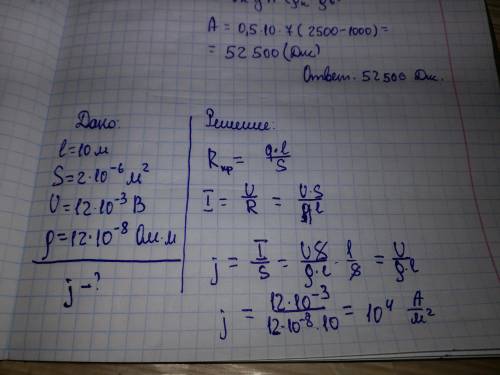 A = 0,5·10·7(2500-1000)=
= 52 500 (Дж)
Ответ. 52 500 Дж.
Дано:
l=10 м
S=2·10⁻⁶ м²
U=12·10⁻³ В
ρ=12·10⁻⁸ Ом·м
j-?
Решение:
Rпр = ρ·l/S
I = U/R = U·S/ρl
j = I/S = US/ρ·l · 1/S = U/ρ·l
j = 12·10⁻³/12·10⁻⁸·10 = 10⁴ А/м²